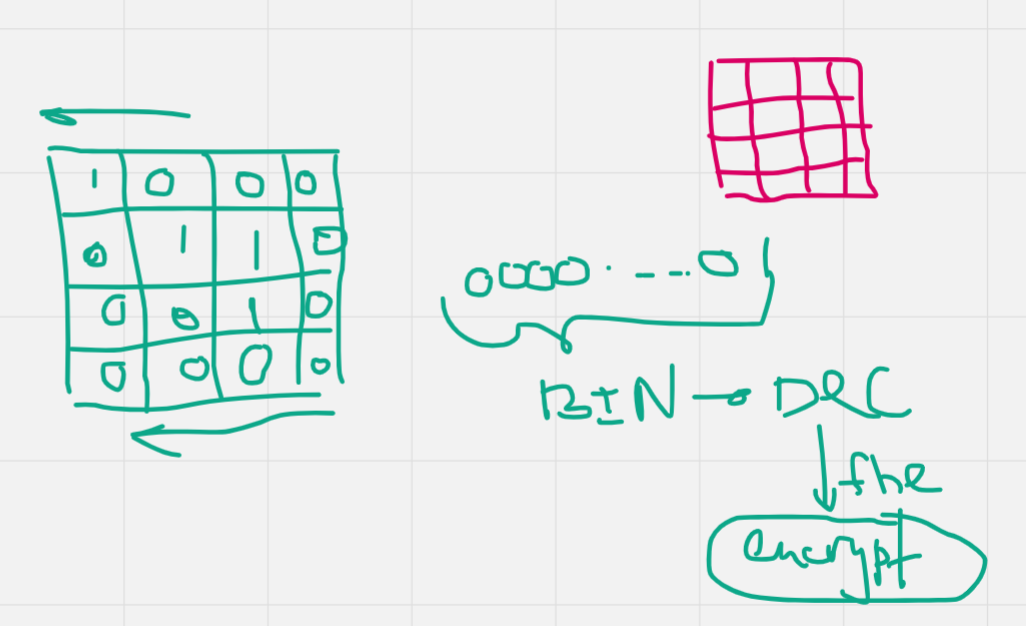 1 0 0 0
0 1 1 0
0 0 1 0
0 0 0 0
0000 . _ _ . 0 1
BIN → DEC
fhe
encrypt